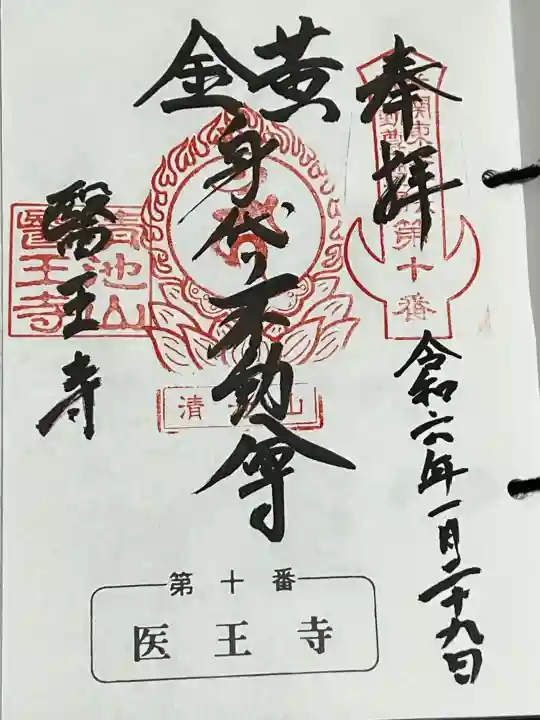 奉拝
第十番
令和六年一月二十九日
黄金
身代り不動尊
清
山
醫王寺
清池山
醫王寺
第十番
医王寺